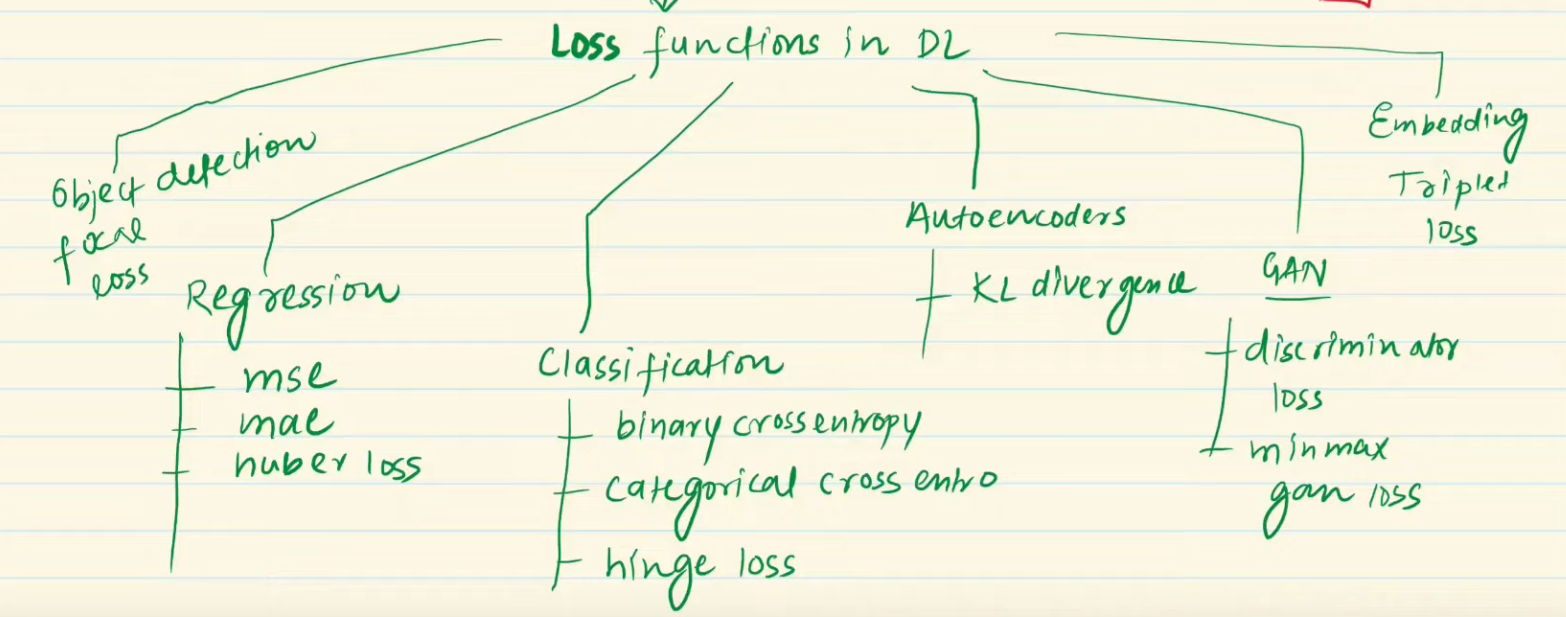 Loss functions in DL
Object detection
focal
loss
Regression
mse
mae
huber loss
Classification
binary cross entropy
categorical cross entro
hinge loss
Autoencoders
KL divergence
GAN
discriminator
loss
minmax
gan loss
Embedding
Triplet
loss